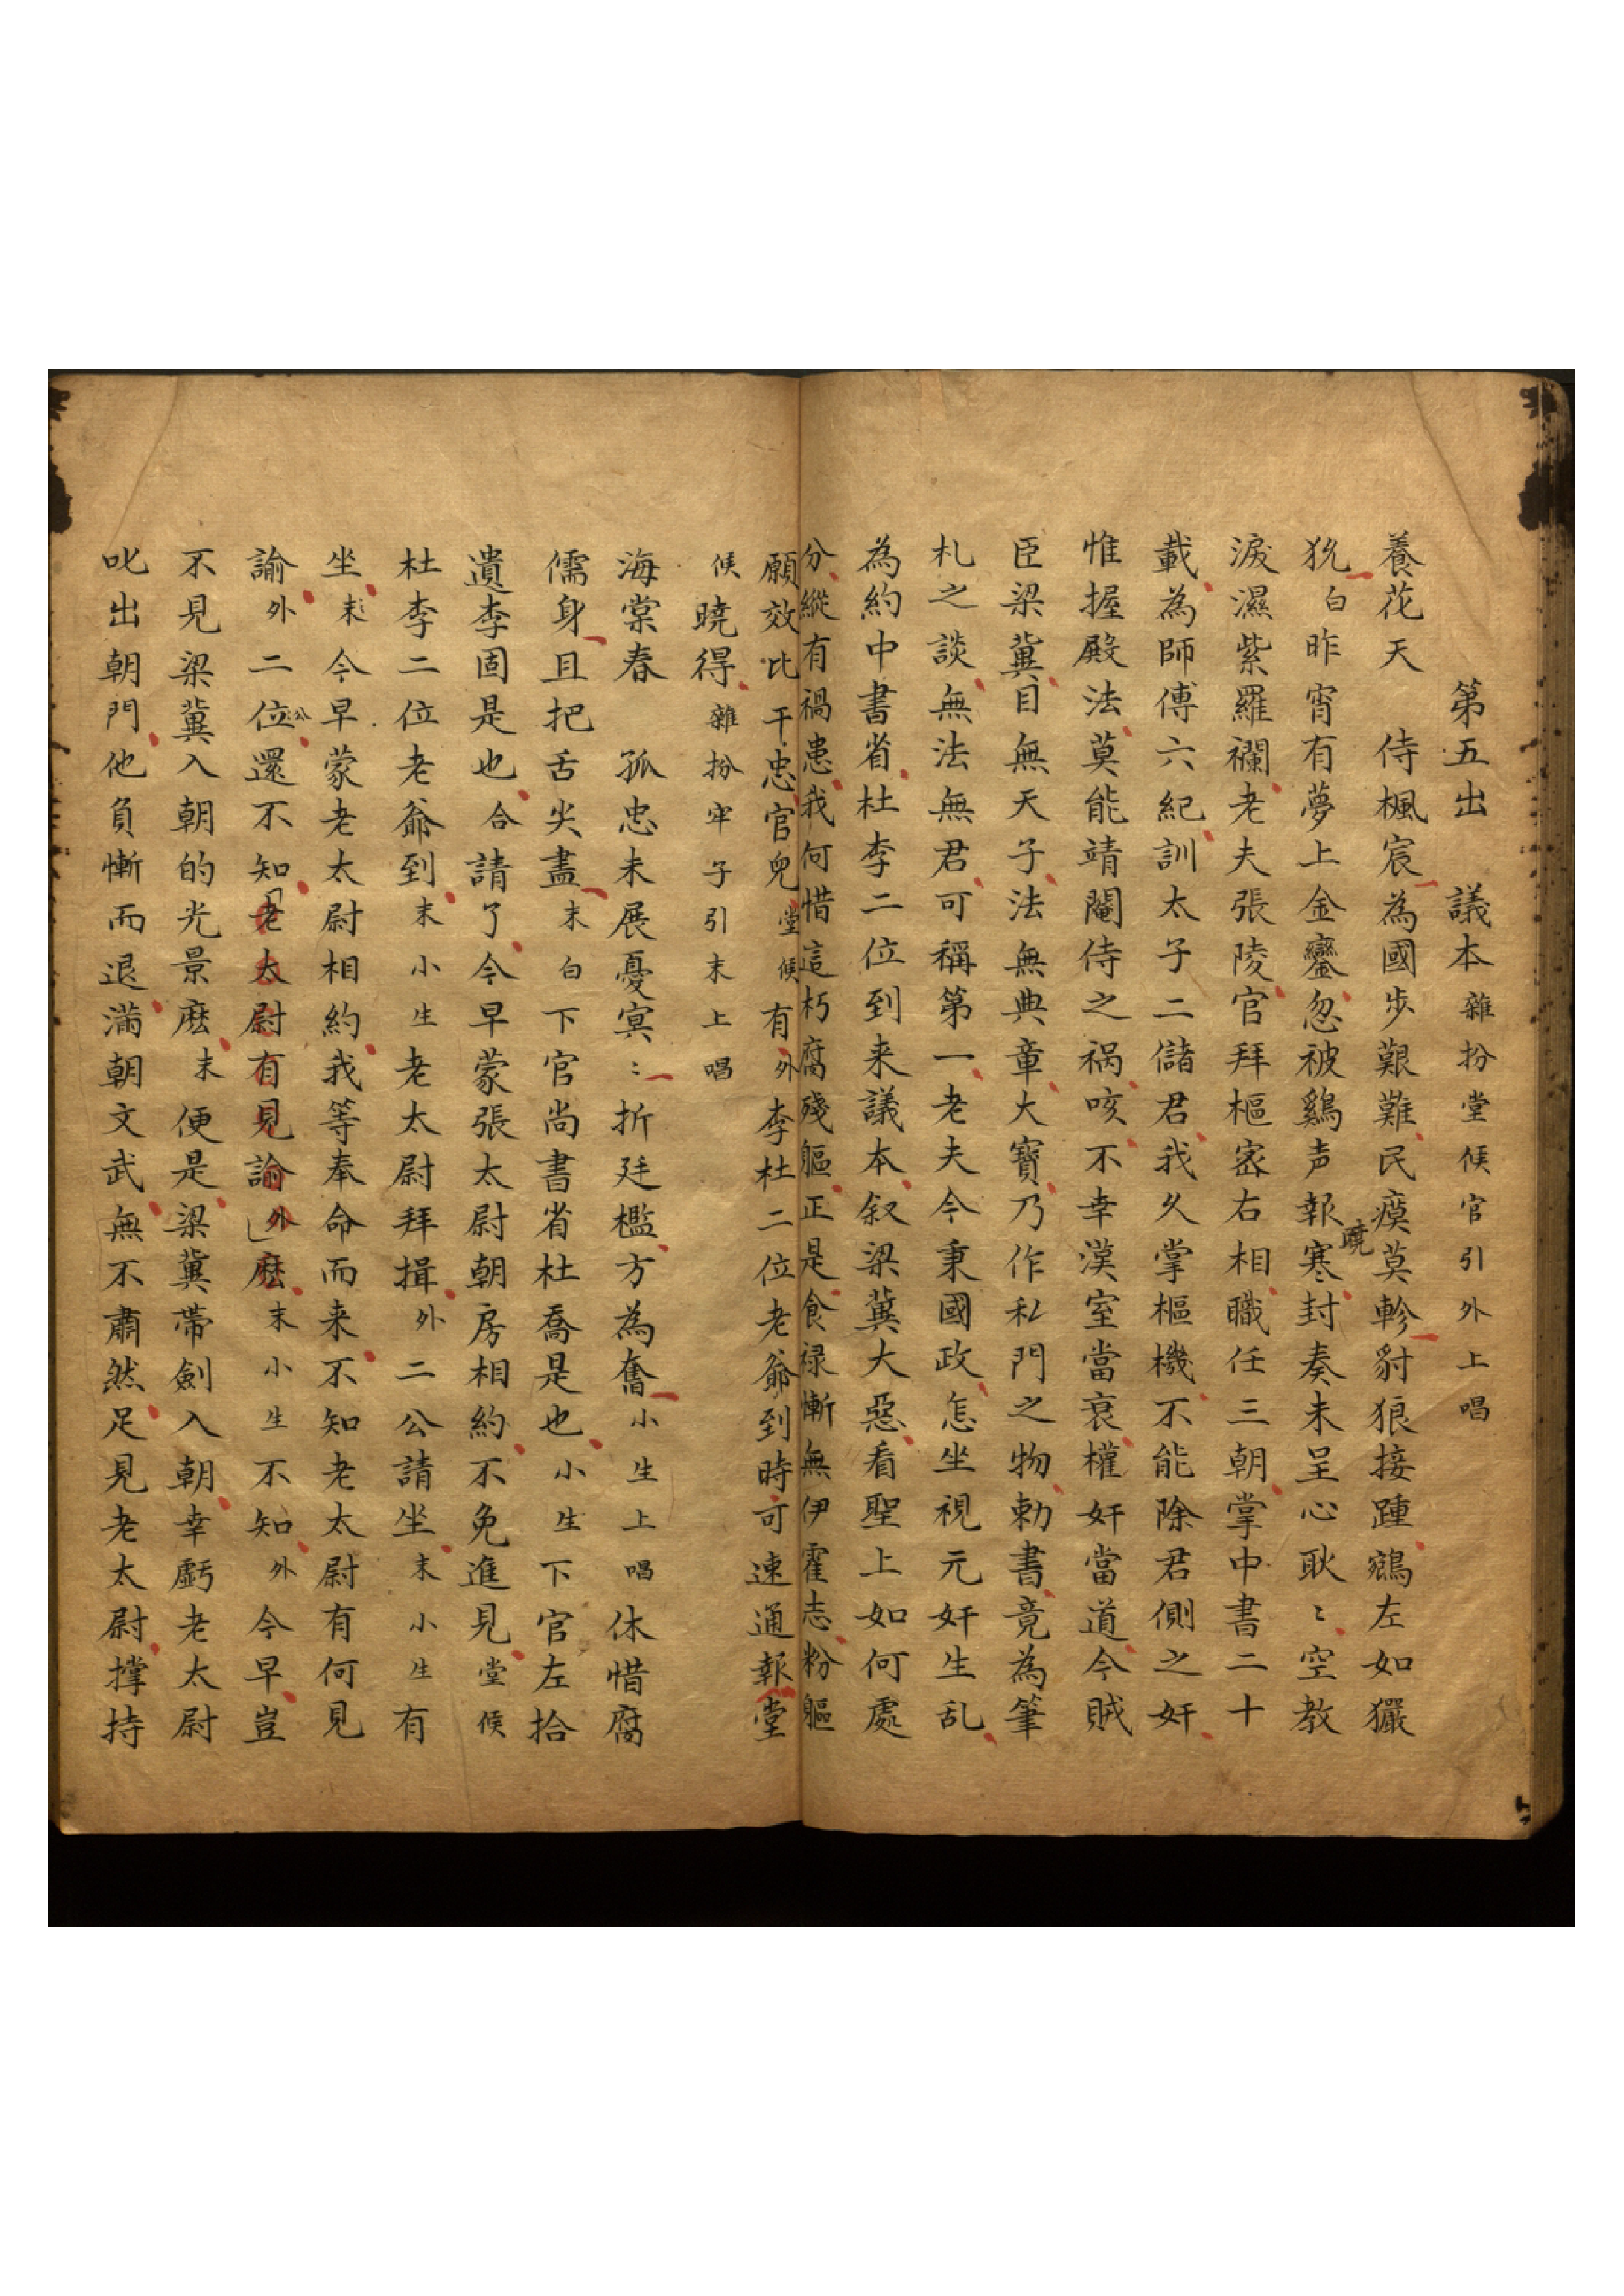 第五出　議本 雜扮堂候官引外上唱
養花天　侍楓宸為國步艱難民瘼莫軫豺狼接踵鵷左如玁
狁 白 昨宵有夢上金鑾忽被鷄声報曉寒封奏未呈心耿〻空教
淚濕紫羅襴老夫張陵官拜樞密右相職任三朝掌中書二十
載為師傅六紀訓太子二儲君我久掌樞機不能除君側之奸
惟握殿法莫能靖閹侍之禍咳不幸漢室當衰權奸當道今賊
臣梁冀目無天子法無典章大寶乃作私門之物勅書竟為筆
札之談無法無君可稱第一老夫今秉國政怎坐視元奸生乱
為約中書省杜李二位到来議本叙梁冀大惡看聖上如何處
分縱有禍患我何惜這朽腐殘軀正是食祿慚無伊霍志粉軀
願效比干忠官兒 堂候 有 外 李杜二位老爺到時可速通報堂
候 曉得 雜扮牢子引末上唱
海棠春　孤忠未展憂冥〻折廷檻方為奮 小生上唱 休惜腐
儒身且把舌尖盡 末白 下官尚書省杜喬是也 小生 下官左拾
遺李固是也 合 請了今早蒙張太尉朝房相約不免進見 堂候
杜李二位老爺到 末小生 老太尉拜揖 外 二公請坐 末小生 有
坐 末 今早蒙老太尉相約我等奉命而来不知老太尉有何見
諭 外 二位公還不知老太尉有見諭 外 麽 末小生 不知 外 今早豈
不見梁冀入朝的光景麽 末 便是梁冀帶劍入朝幸虧老太尉
叱出朝門他負慚而退滿朝文武無不肅然足見老太尉撑持